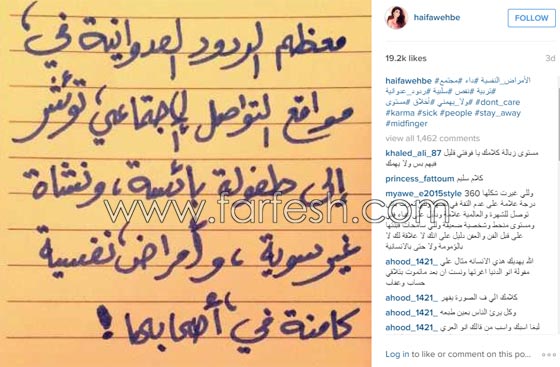 معظم الردود العدوانية في
مواقع التواصل الإجتماعي تؤشر
إلى طفولة بائسة، ونشأة
www.fartesh.com
غير سوية، وأمراض نفسية
كامنة في أصحابها!
haifawehbe
FOLLOW
19.2k likes
3d
haifawehbe #الأمراض_النفسية #داء #مجتمع
#تربية #نقص #سلبية #ردود_عدوانية
#ولا_يهمني #أخلاق #مستوى #dont_care
#karma #sick #people #stay_away
#midfinger
view all 1,462 comments
khaled_ali_87 مستوى زبالة كلامك يا فوفتي قليل
فيهم بس ولا يهمك
princess_fattoum كلام سليم
myawe_e2015style واللي غيرت شكلها 360
درجة علامة على عدم الثقة في
توصل للشهرة والعالمية علامة
ومستوى منحط وشخصية ضعيفة واللي
على قبل الفن والعفن دليل على انك لا علاقة لك لا
بالأمومة ولا حتى بالانسانية
ahood_1421_ الله يهديك هذي الانسانه مثال على
مقولة انو الدنيا اغرتها ونست ان بعد مانموت بنلاقي
حساب وعقاب
ahood_1421_ كلامك الي ف الصورة بقهر
ahood_1421_ وكل يرئ الناس بعين طبعه
ahood_1421_ ليغا اسبك واسب من قالك انو العري
Log in to like or comment on this po...